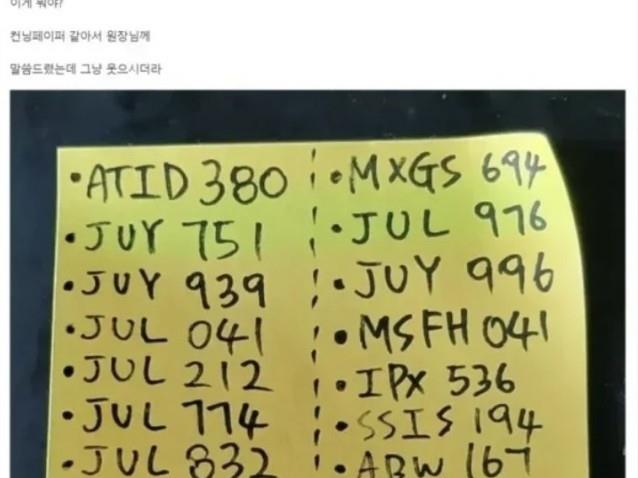 이게 뭐야?
컨닝페이퍼 같아서 원장님께
말씀드렸는데 그냥 웃으시더라
•ATID 380
•JUY 751
•JUY 939
•JUL 041
•JUL 212
•JUL 774
•JUL 832
•MXGS 694
•JUL 976
•JUY 996
•MSFH 041
•IPX 536
•SSIS 194
•ABW 167